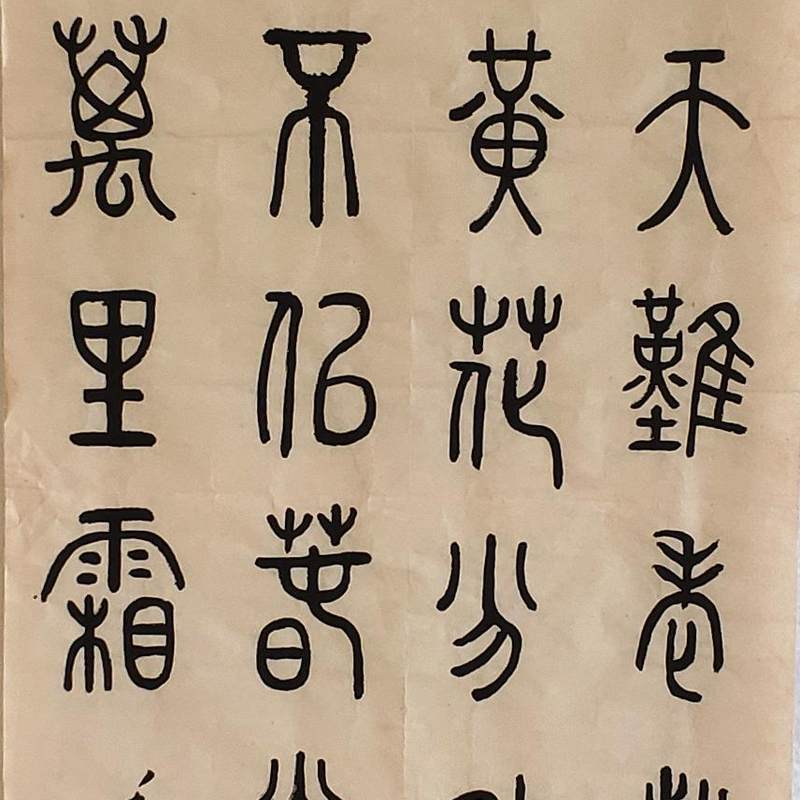 天難老
黃花分
不似春
萬里霜